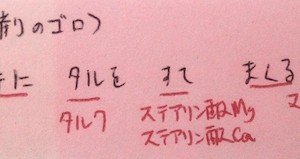 剤のゴロ)
テに タルを すて まくる
タルク ステアリン酸Mg マ
ステアリン酸Ca